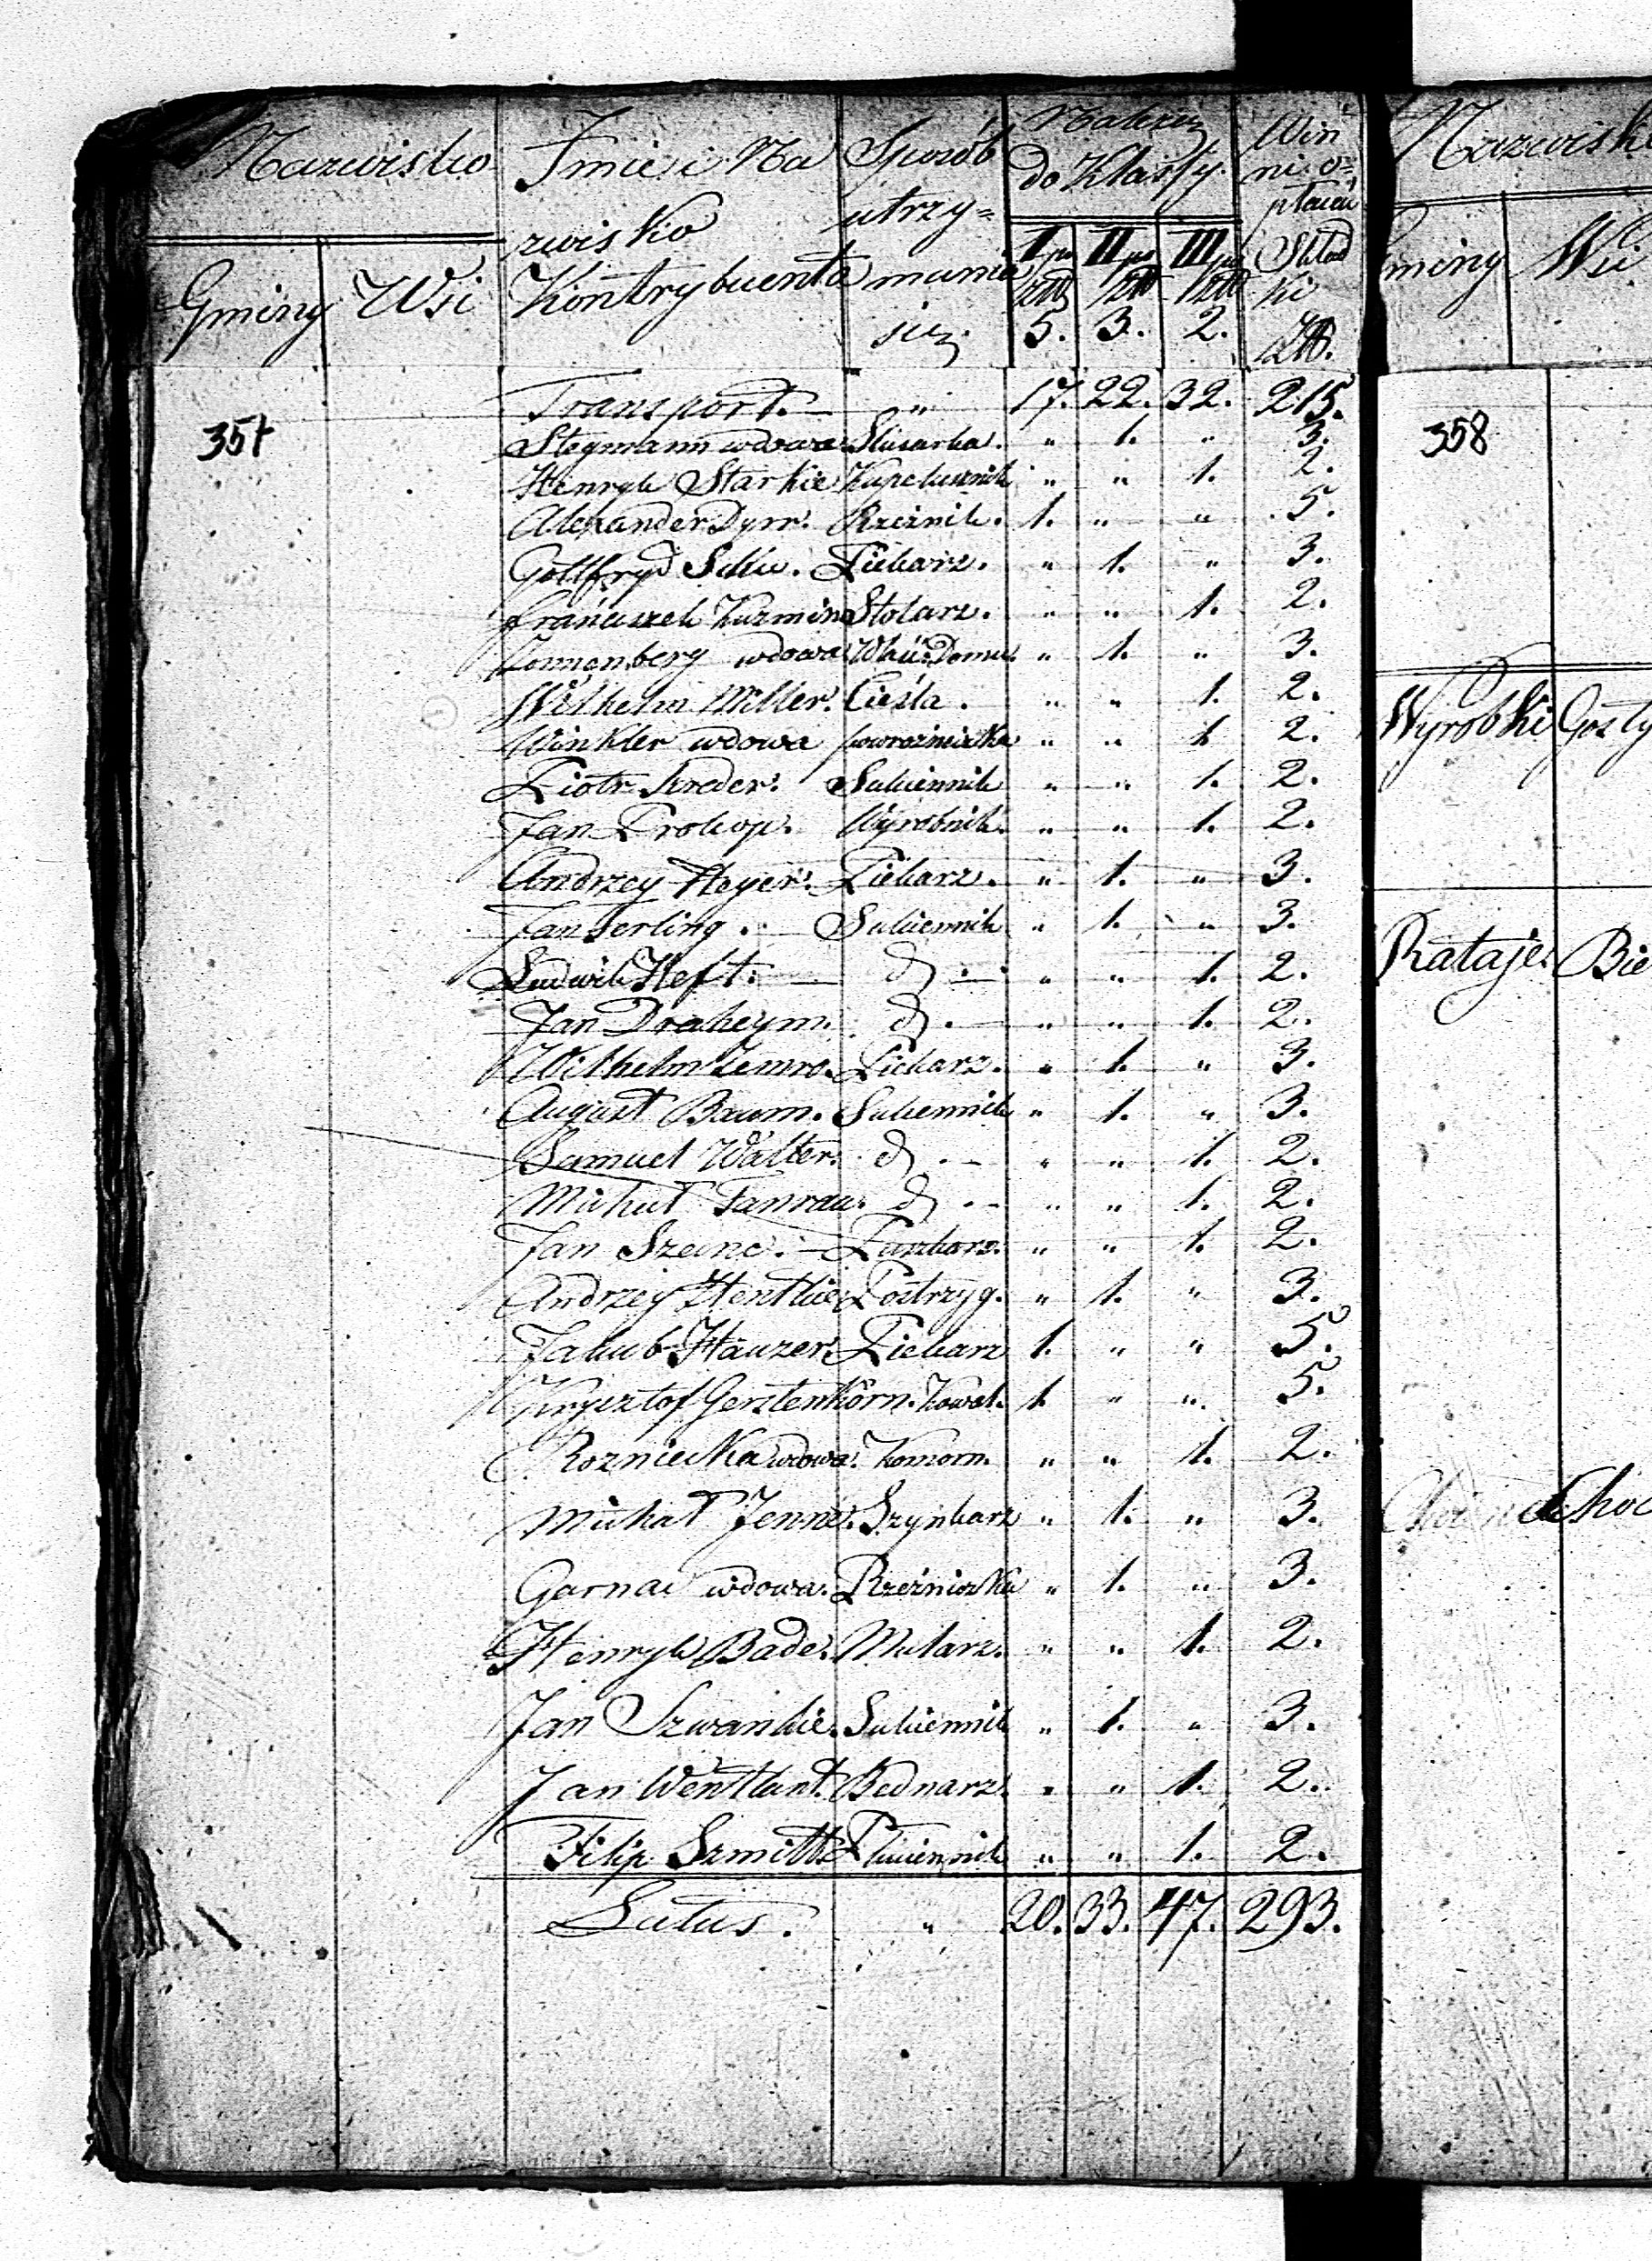 Nazwisko Imie i Na Sposób Należy Win
zwisko utrzy= do Klassy ni o=
płacić
Gminy Wsi Kontrybuenta mania I po II po III po Skład
się. złł złł złł ki
5. 3. 2. złł.
Transport. — " 17. 22. 32. 215.
357
Stegmann wdowa Slusarka. " 1. " 3.
Henryk Starkie Kapelusznik " " 1. 2.
Alexander Dyrr. Rzeznik. 1. " " 5.
Gottfryd Piekarz. " 1. " 3.
Franciszek Kuzmin Stolarz. " " 1. 2.
Zonnenberg wdowa Właś: Domu. " 1. " 3.
Wilhelm Miller. Cieśla. " " 1. 2.
Winkler wdowa powrozniczka " " 1. 2.
Piotr Kreder. Sukiennik " " 1. 2.
Jan Prokop. Wyrobnik. " " 1. 2.
Andrzey Heyer. Piekarz. " 1. " 3.
Jan Serling. — Sukiennik " 1. " 3.
Ludwik Heft. — d. — " " 1. 2.
Jan Draheym. d. — " " 1. 2.
Wilhelm Zemro. Piekarz. " 1. " 3.
August Baum. Sukiennik " 1. " 3.
Samuel Walter. d. — " " 1. 2.
Michał Tanrau. d. — " " 1. 2.
Jan Szeinc. — " " 1. 2.
Andrzey Hentkie Postrzyg. " 1. " 3.
Jakub Hauzer. Piekarz 1. " " 5.
Krysztof Gerstenkorn. Kowal. 1. " " 5.
Rozniecka wdowa. Komorn. " " 1. 2.
Michał Jenne. Szynkarz " 1. " 3.
Garnac wdowa. Rzezniczka " 1. " 3.
Henryk Bade. Mularz. " " 1. 2.
Jan Szwankie. Sukiennik " 1. " 3.
Jan Wentlant. Bednarz. " " 1. 2.
Filip Szmitt. Płuciennik " " 1. 2.
Latus. " 20. 33. 47. 293.
Nazwisko
Gminy Wsi
358
Wyrobki Gosty
Rataje. Bie